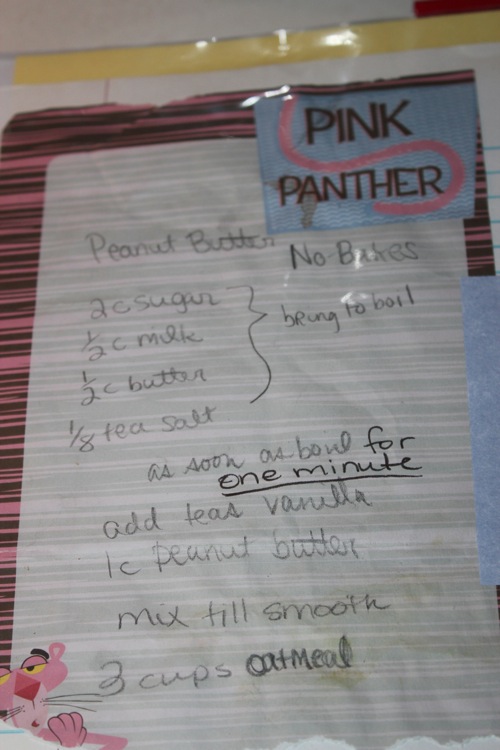 PINK
PANTHER
Peanut Butter
No Bakes
2c sugar
1/2 c milk
bring to boil
1/2 c butter
1/8 tea salt
as soon as boil for
one minute
add teas vanilla
1c peanut butter
mix till smooth
3 cups oatmeal